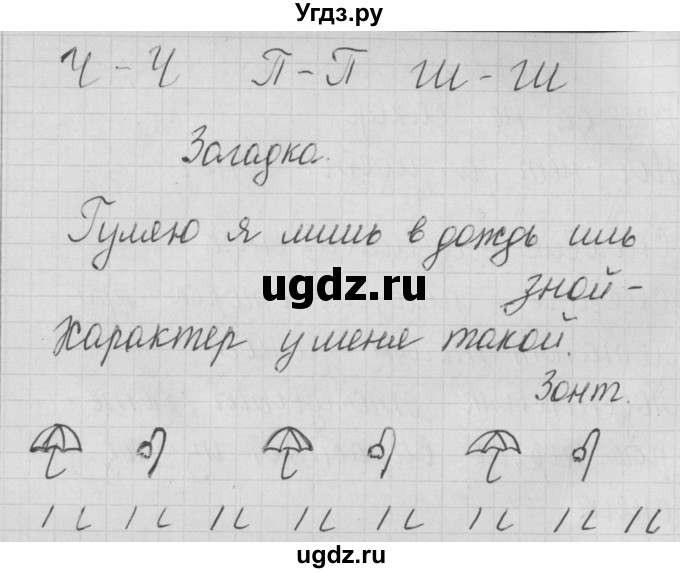 Угдз.ру
Ч - Ч П - П Ш - Ш
Загадка.
Гуляю я лишь в дождь иль
зной -
ugdz.ru
Характер у меня такой.
Зонт.
ugdz.ru